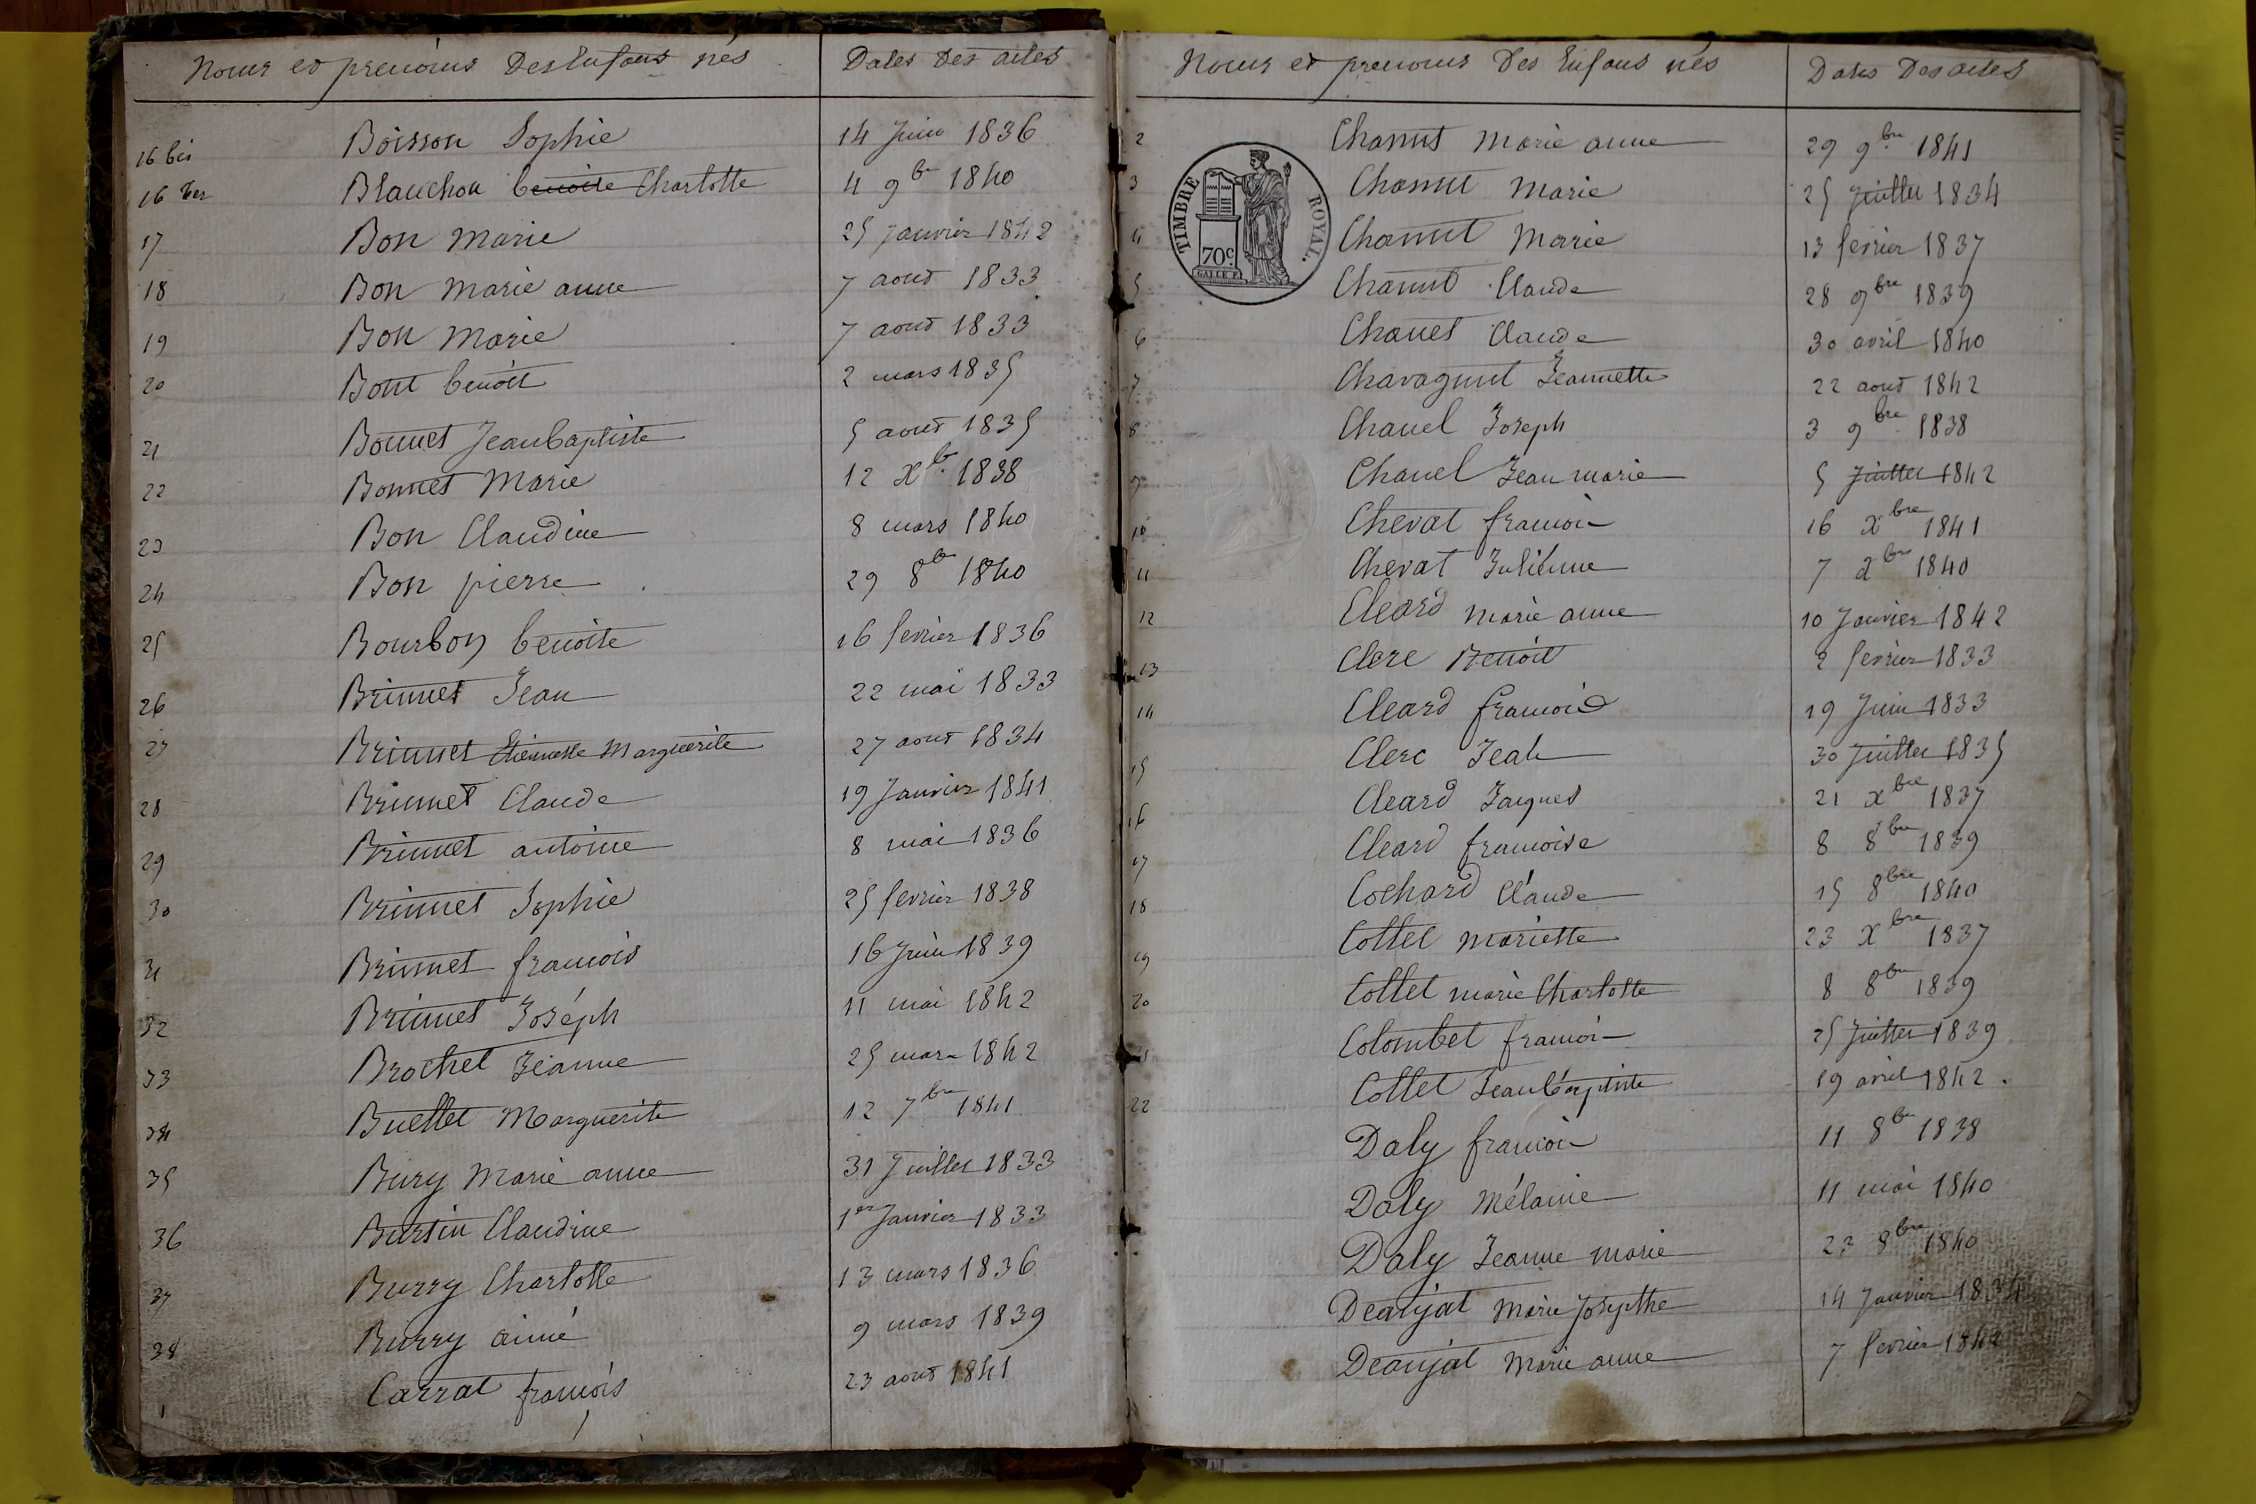 Noms et prenoms Des Enfans nés Dates Des actes
16 bis Boisson Sophie 14 Juin 1836
16 ter Blanchon benoite Charlotte 4 9bre 1840
17 Bon Marie 25 Janvier 1842
18 Bon Marie anne 7 aout 1833
19 Bon Marie 7 aout 1833
20 Bont benoit 2 mars 1835
21 Bonnet Jean baptiste 5 aout 1835
22 Bonnet Marie 12 Xbre 1838
23 Bon Claudine 8 mars 1840
24 Bon pierre 29 8bre 1840
25 Bourbon benoite 16 fevrier 1836
26 Brunet Jean 22 mai 1833
27 Brunet Etiennette Marguerite 27 aout 1834
28 Brunet Claude 19 Janvier 1841
29 Brunet antoine 8 mai 1836
30 Brunet Sophie 25 fevrier 1838
31 Brunet francois 16 Juin 1839
32 Brunet Joséph 11 mai 1842
33 Brochet Jeanne 25 mars 1842
34 Buellet Marguerite 12 7bre 1841
35 Bury Marie anne 31 Juillet 1833
36 Bursin Claudine 1er Janvier 1833
37 Burry Charlotte 13 mars 1836
38 Burry aimé 9 mars 1839
1 Carrat francois 23 aout 1841
Noms et prenoms Des Enfans nés Dates Des actes
2 Chanut Marie anne 29 9bre 1841
3 Chanut Marie 25 Juillet 1834
4 Chanut Marie 13 fevrier 1837
5 Chanut Claude 28 9bre 1839
6 Chanet Claude 30 avril 1840
7 Chavagnut Jeannette 22 aout 1842
8 Chanel Joseph 3 9bre 1838
9 Chanel Jean marie 5 Juillet 1842
10 Chevat francois 16 Xbre 1841
11 Chevat Julienne 7 Xbre 1840
12 Cleard Marie anne 10 Janvier 1842
13 Clerc Benoit 2 fevrier 1833
14 Cleard francois 19 Juin 1833
15 Clerc Jean 30 Juillet 1835
16 Cleard Jacques 21 Xbre 1837
17 Cleard francoise 8 8bre 1839
18 Cochard Claude 15 8bre 1840
19 Collet Mariette 23 Xbre 1837
20 Collet Marie Charlotte 8 8bre 1839
21 Colombet francois 25 Juillet 1839
22 Collet Jean baptiste 19 avril 1842
Daly francois 11 8bre 1838
Daly Mélanie 11 mai 1840
Daly Jeanne Marie 23 8bre 1840
Deanjat Marie Josepthe 14 Janvier 1834
Deanjat Marie anne 7 fevrier
TIMBRE ROYAL.
70c.